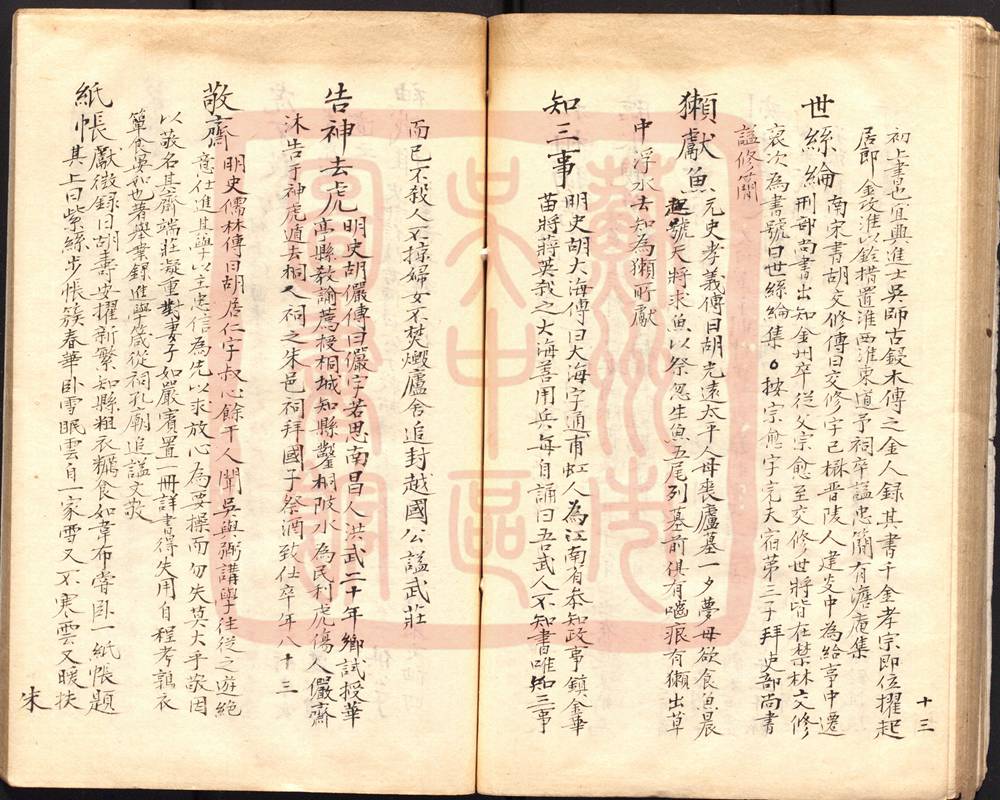 初上書邑宜興進士吳師古鋟木傳之金人録其書千金孝宗即位擢起
居郎金改淮以銓措置淮西淮東道予祠卒謚忠簡有澹庵集
世絲綸南宋書胡交修傳曰交修字已楙晋陵人建炎中為給事中遷
刑部尚書出知金州卒從父宗愈至交修世將皆在禁林交修
裒次為書號曰世絲綸集○按宗愈字完夫宿第三子拜吏部尚書
謚修簡
獺獻魚元史孝義傳曰胡光遠太平人母喪廬墓一夕夢母欲食魚晨
起號天將求魚以祭忽生魚五尾列墓前俱有嚙痕有獺出草
中浮水去知為獺所獻
知三事明史胡大海傳曰大海字通甫虹人為江南省叅知政事鎮金華
苗將蔣英殺之大海善用兵每自誦曰吾武人不知書唯知三事
十三
而已不殺人不掠婦女不焚燬廬舍追封越國公謚武莊
告神去虎明史胡儼傳曰儼字若思南昌人洪武二十年鄉試授華
亭縣教諭薦授桐城知縣鑿桐陂水為民利虎傷人儼齋
沐告于神虎遁去桐人祠之朱邑祠拜國子祭酒致仕卒年八十三
敬齋明史儒林傳曰胡居仁字叔心餘干人聞吳與弼講學往從之遊絶
意仕進其學以主忠信為先以求放心為要操而勿失莫大乎敬因
以敬名其齋端莊凝重對妻子如嚴賓置一冊詳書得失用自程考鶉衣
簞食晏如也著學業録進學箴從祠孔廟追謚文敬
紙帳獻徵録曰胡壽安擢新繁知縣粗衣糲食如韋布嘗卧一紙帳題
其上曰紫絲步帳簇春華卧雪眠雲自一家雪又不寒雲又暖扶
朱